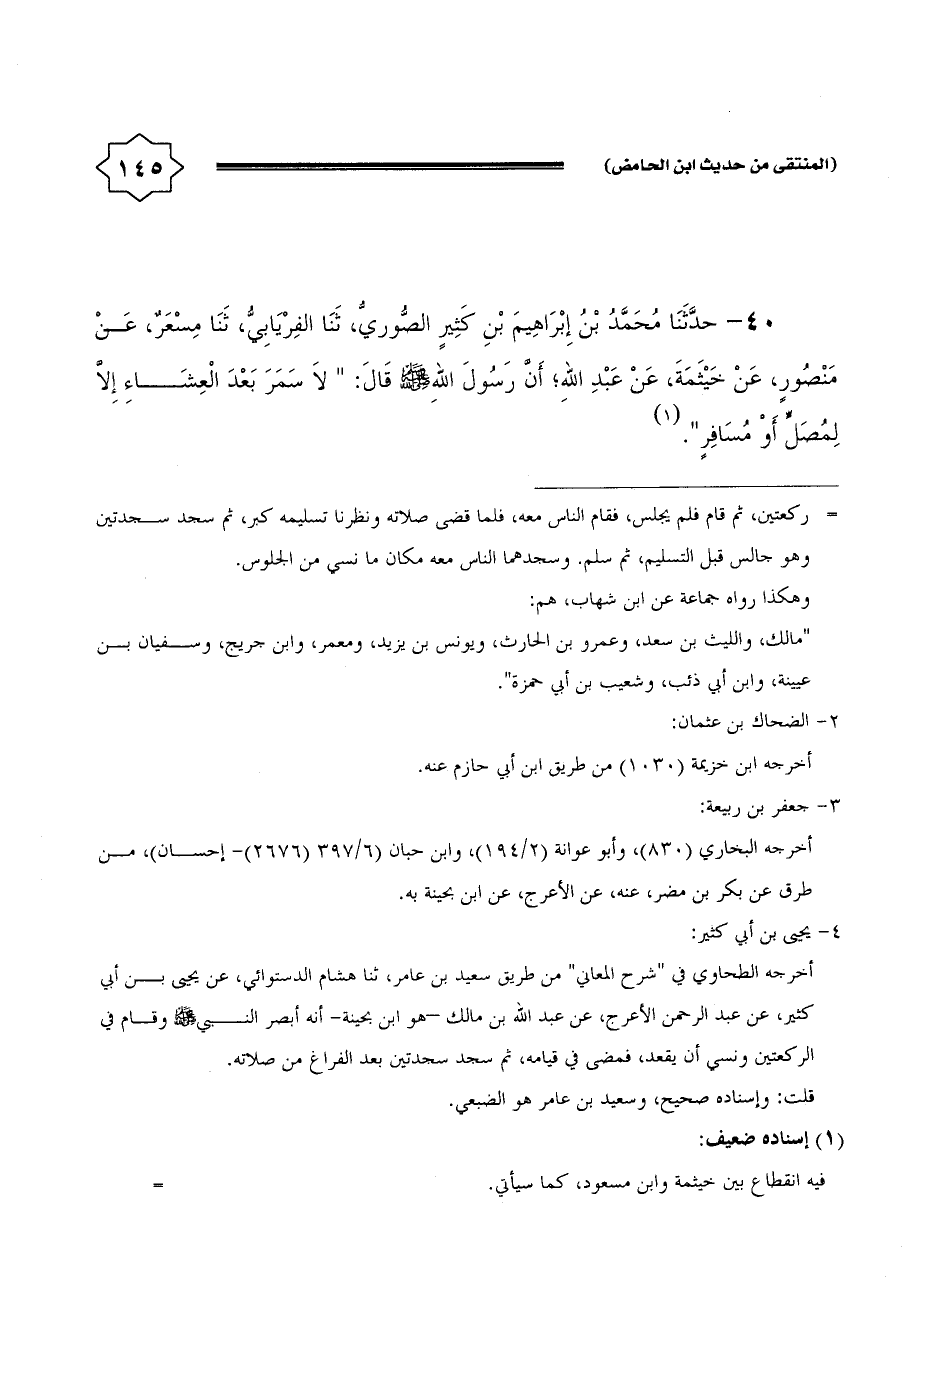 (المنتقى من حديث ابن الحامض) ١٤٥
٤٠- حدَّثَنَا مُحَمَّدُ بْنُ إِبْرَاهِيمَ بْنِ كَثِيرٍ الصُّوريُّ، ثَنَا الفِرْيَابيُّ، ثَنا مِسْعَرٌ، عَـنْ
مَنْصُورٍ، عَنْ خَيْثَمَةَ، عَنْ عَبْدِ اللهِ؛ أَنَّ رَسُولَ اللهِ ﷺ قَالَ: " لاَ سَمَرَ بَعْدَ الْعِشَـــاءِ إِلاَّ
لِمُصَلٍّ أَوْ مُسَافِرٍ".(١)
= ركعتين، ثم قام فلم يجلس، فقام الناس معه، فلما قضى صلاته ونظرنا تسليمه كبر، ثم سجد ســجدتين
وهو جالس قبل التسليم، ثم سلم. وسجدهما الناس معه مكان ما نسي من الجلوس.
وهكذا رواه جماعة عن ابن شهاب، هم:
"مالك، والليث بن سعد، وعمرو بن الحارث، ويونس بن يزيد، ومعمر، وابن جريج، وســفيان بــن
عيينة، وابن أبي ذئب، وشعيب بن أبي حمزة".
٢- الضحاك بن عثمان:
أخرجه ابن خزيمة (١٠٣٠) من طريق ابن أبي حازم عنه.
٣- جعفر بن ربيعة:
أخرجه البخاري (٨٣٠)، وأبو عوانة (١٩٤/٢)، وابن حبان (٣٩٧/٦ (٢٦٧٦)- إحســان)، مــن
طرق عن بكر بن مضر، عنه، عن الأعرج، عن ابن بحينة به.
٤- يحيى بن أبي كثير:
أخرجه الطحاوي في "شرح المعاني" من طريق سعيد بن عامر، ثنا هشام الدستوائي، عن يحيى بــن أبي
كثير، عن عبد الرحمن الأعرج، عن عبد الله بن مالك –هو ابن بحينة- أنه أبصر النـــبي ﷺ وقــام في
الركعتين ونسي أن يقعد، فمضى في قيامه، ثم سجد سجدتين بعد الفراغ من صلاته.
قلت: وإسناده صحيح، وسعيد بن عامر هو الضبعي.
(١) إسناده ضعيف:
فيه انقطاع بين خيثمة وابن مسعود، كما سيأتي. =